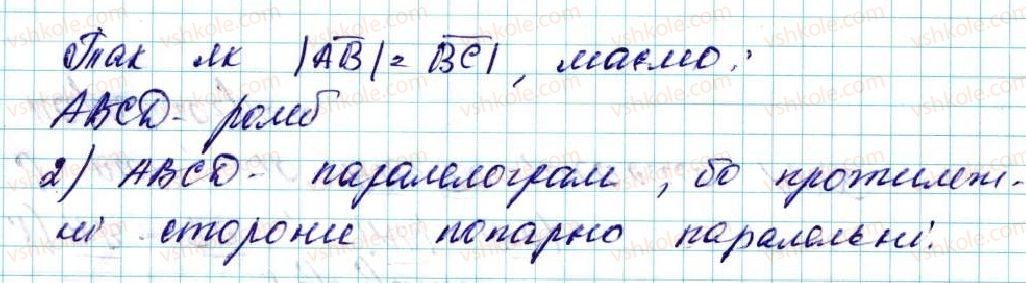 Так як |AB| = BC|, маємо:
ABCD - ромб
2) ABCD - паралелограм, бо протилеж-
ні сторони попарно паралельні.